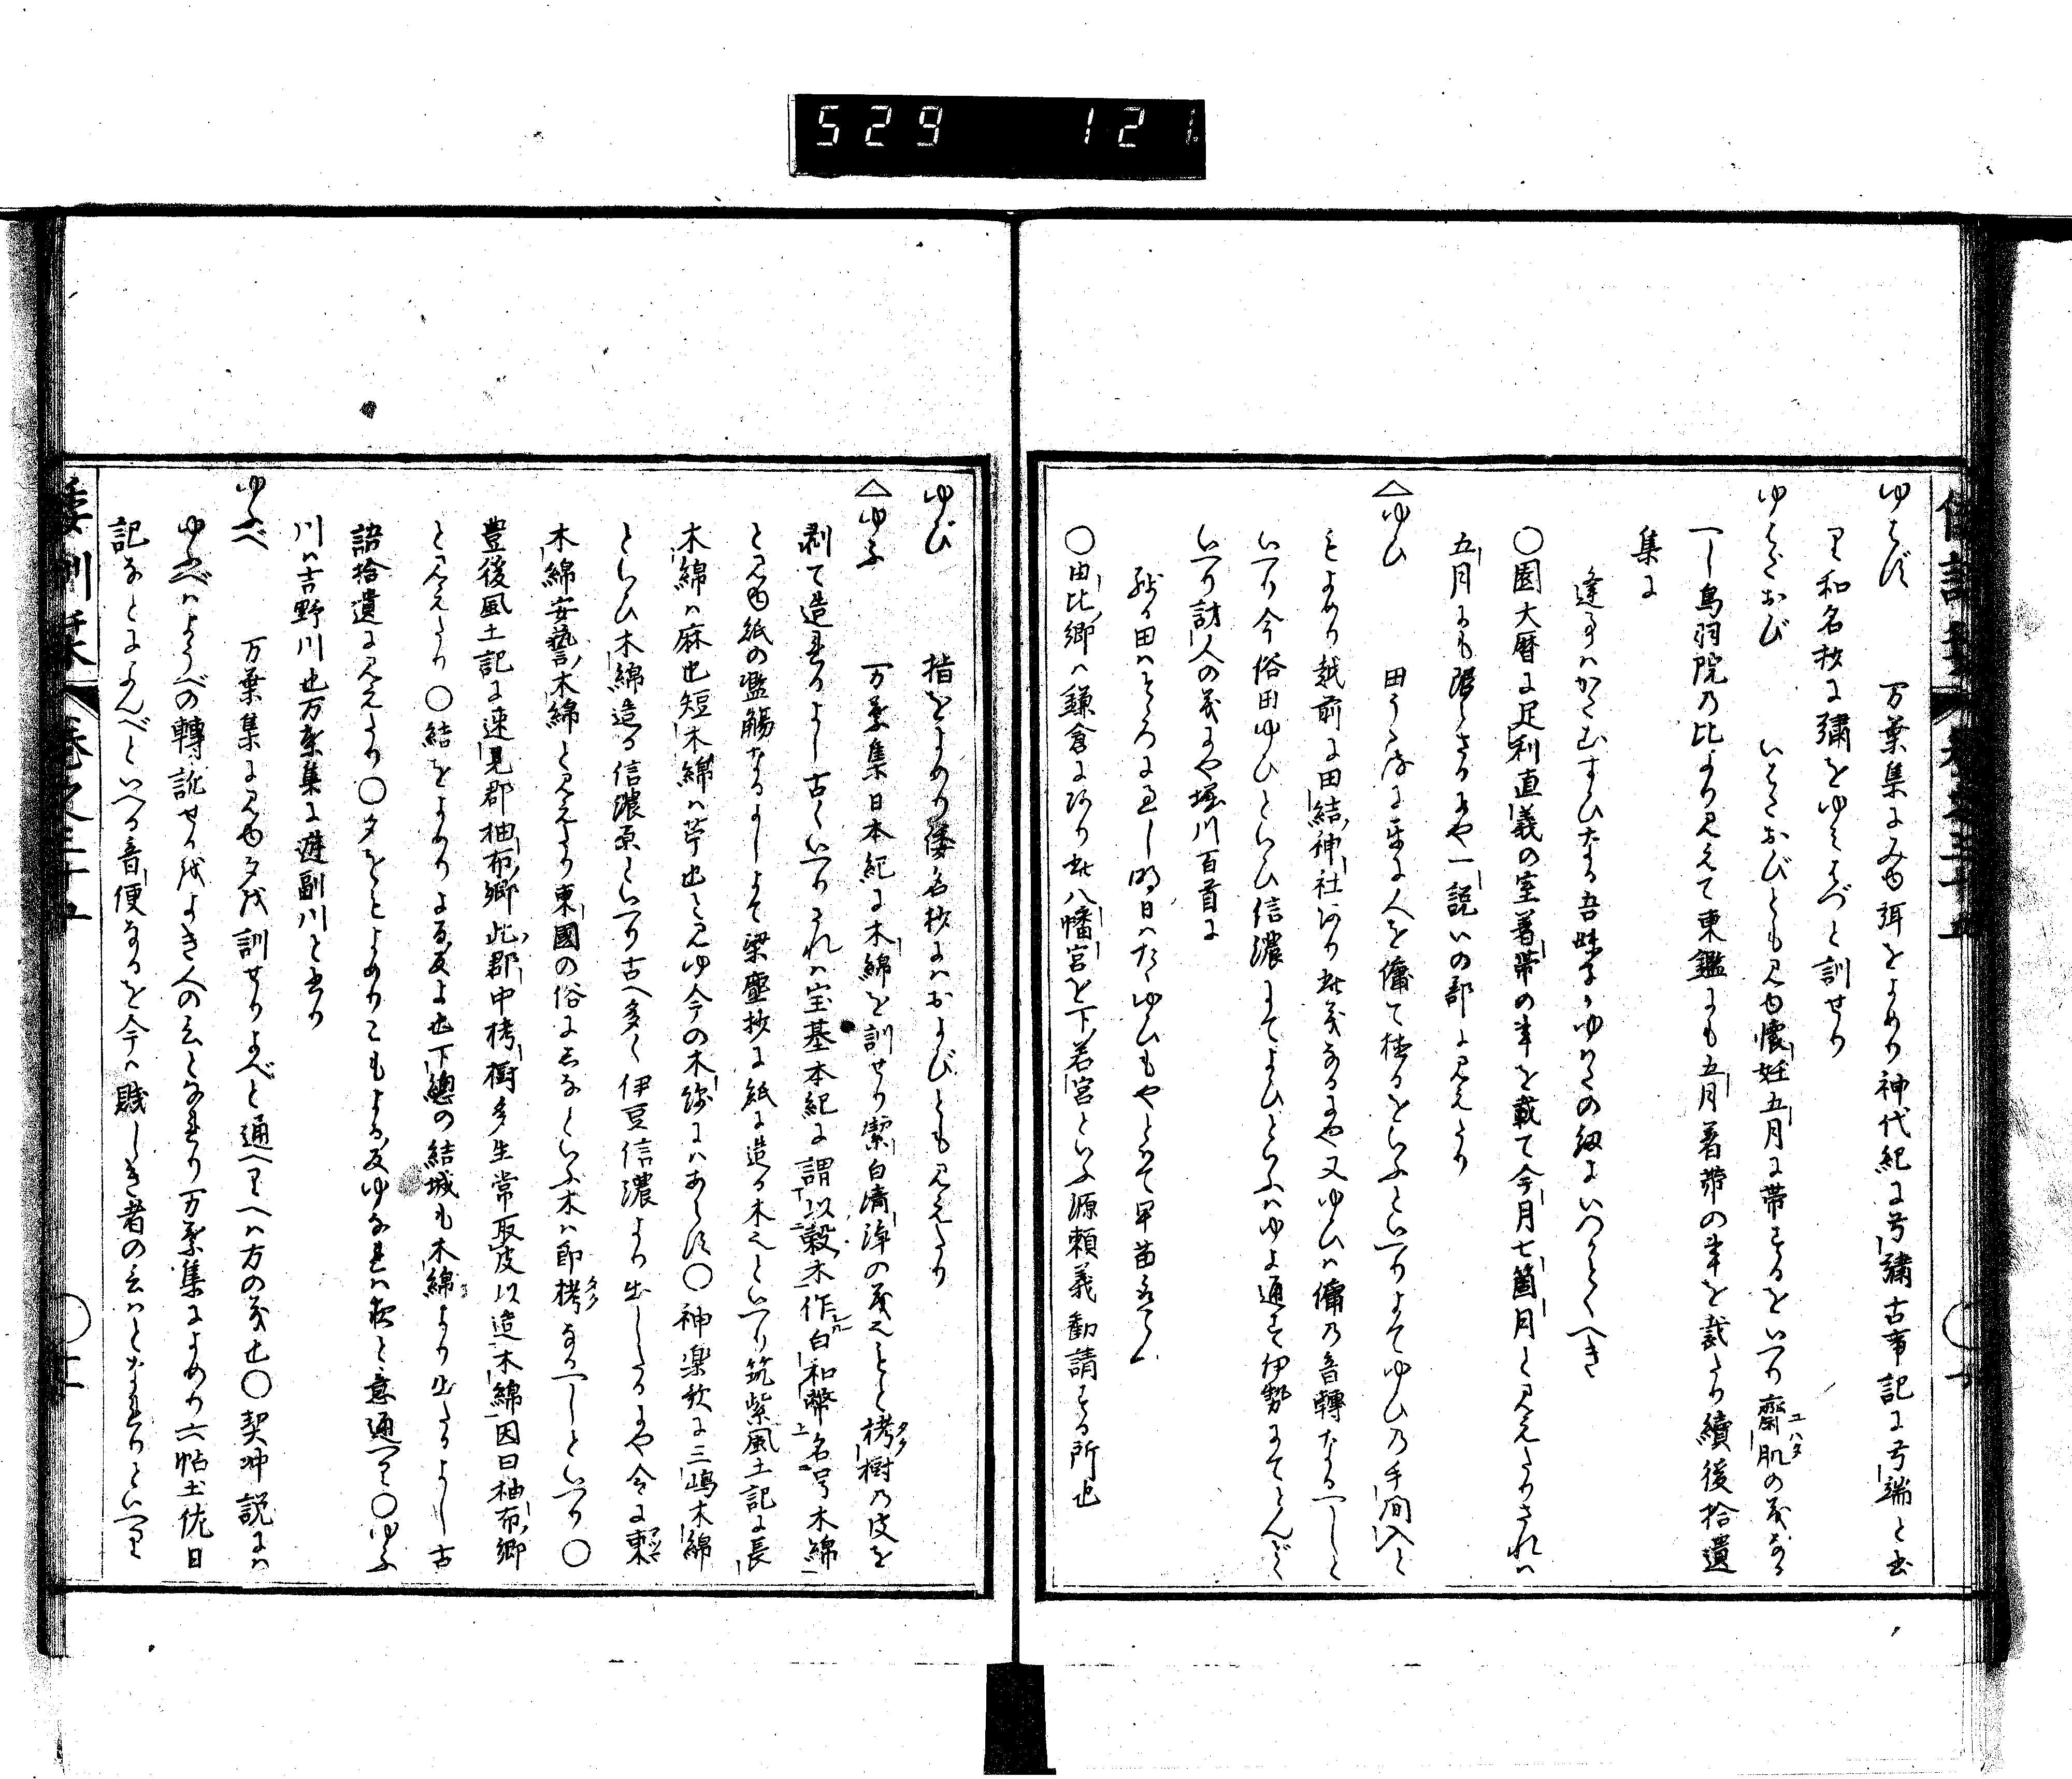 529 121
ゆはず 万葉集にみゆ弭をよめり神代紀に弓彇古事記に弓端と書
り和名抄に彇をゆみはづと訓せり
ゆはだおび いはたおびとも見ゆ懐妊五月に帯するをいへり齋肌の義なる
へし鳥羽院の比より見えて東鑑にも五月着帯の事を載たり續後拾遺
集に
逢事はかたむすひなる吾妹子かゆはたの紐はいつかとくへき
○園大暦に足利直義の室着帯の事を載て今月七箇月と見えたりされは
五月にも限らさるにや一説いの部に見えたり
△ゆひ 田うゝる事に人を傭て植るをいふといへりよてゆひの手間入と
もよめり越前に田結神社あり此義なるにや又ゆひは傭の音轉なるへしと
いへり今俗田ゆひといひ信濃にてよひといふはゆよ通す伊勢にてとんど
いへり訪人の義にや堀川百首に
残る田はそろにし明日はたゝゆひもやとはて早苗とりてん
○由比郷は鎌倉にあり此八幡宮を下若宮といふ源頼義勧請する所也
ゆび 指をよめり倭名抄にはおよびとも見えたり
△ゆふ 万葉集日本紀に木綿を訓せり潔白清浄の義之もと栲樹の皮を
剥て造れるよし古くいへりされは宝基本紀に謂以穀木作白和幣名号木綿
と見ゆ紙の濫觴なるよしよて梁塵抄に紙に造る木之といへり筑紫風土記に長
木綿は麻也短木綿は苧也と見ゆ今の木綿にはあらす○神楽歌に三嶋木綿
といひ木綿造る信濃原といへり古へ多く伊豆信濃より出しゝるにや今に東
木綿安藝木綿と見えたり東國の俗にしなといふ木は即栲なるへしといへり○
豊後風土記に速見郡柚布郷此郡中栲樹多生常取皮以造木綿因曰柚布郷
と見えたり○結をよめりよる反よ也下總の結城も木綿より出たるよし古
語拾遺に見えたり○夕をもよめりこもよる反ゆなれは夜と意通へり○ゆふ
川は吉野川也万葉集に遊副川と書り
ゆふべ 万葉集に見ゆ夕を訓せりよべと通へりへは方の義也○契沖説には
ゆふべはようべの轉訛せりよき人の云となれり万葉集によめり六帖土佐日
記なとによんべといへる音便なるを今は賤しき者の云ことなれりといへり
倭訓栞 巻之三十五